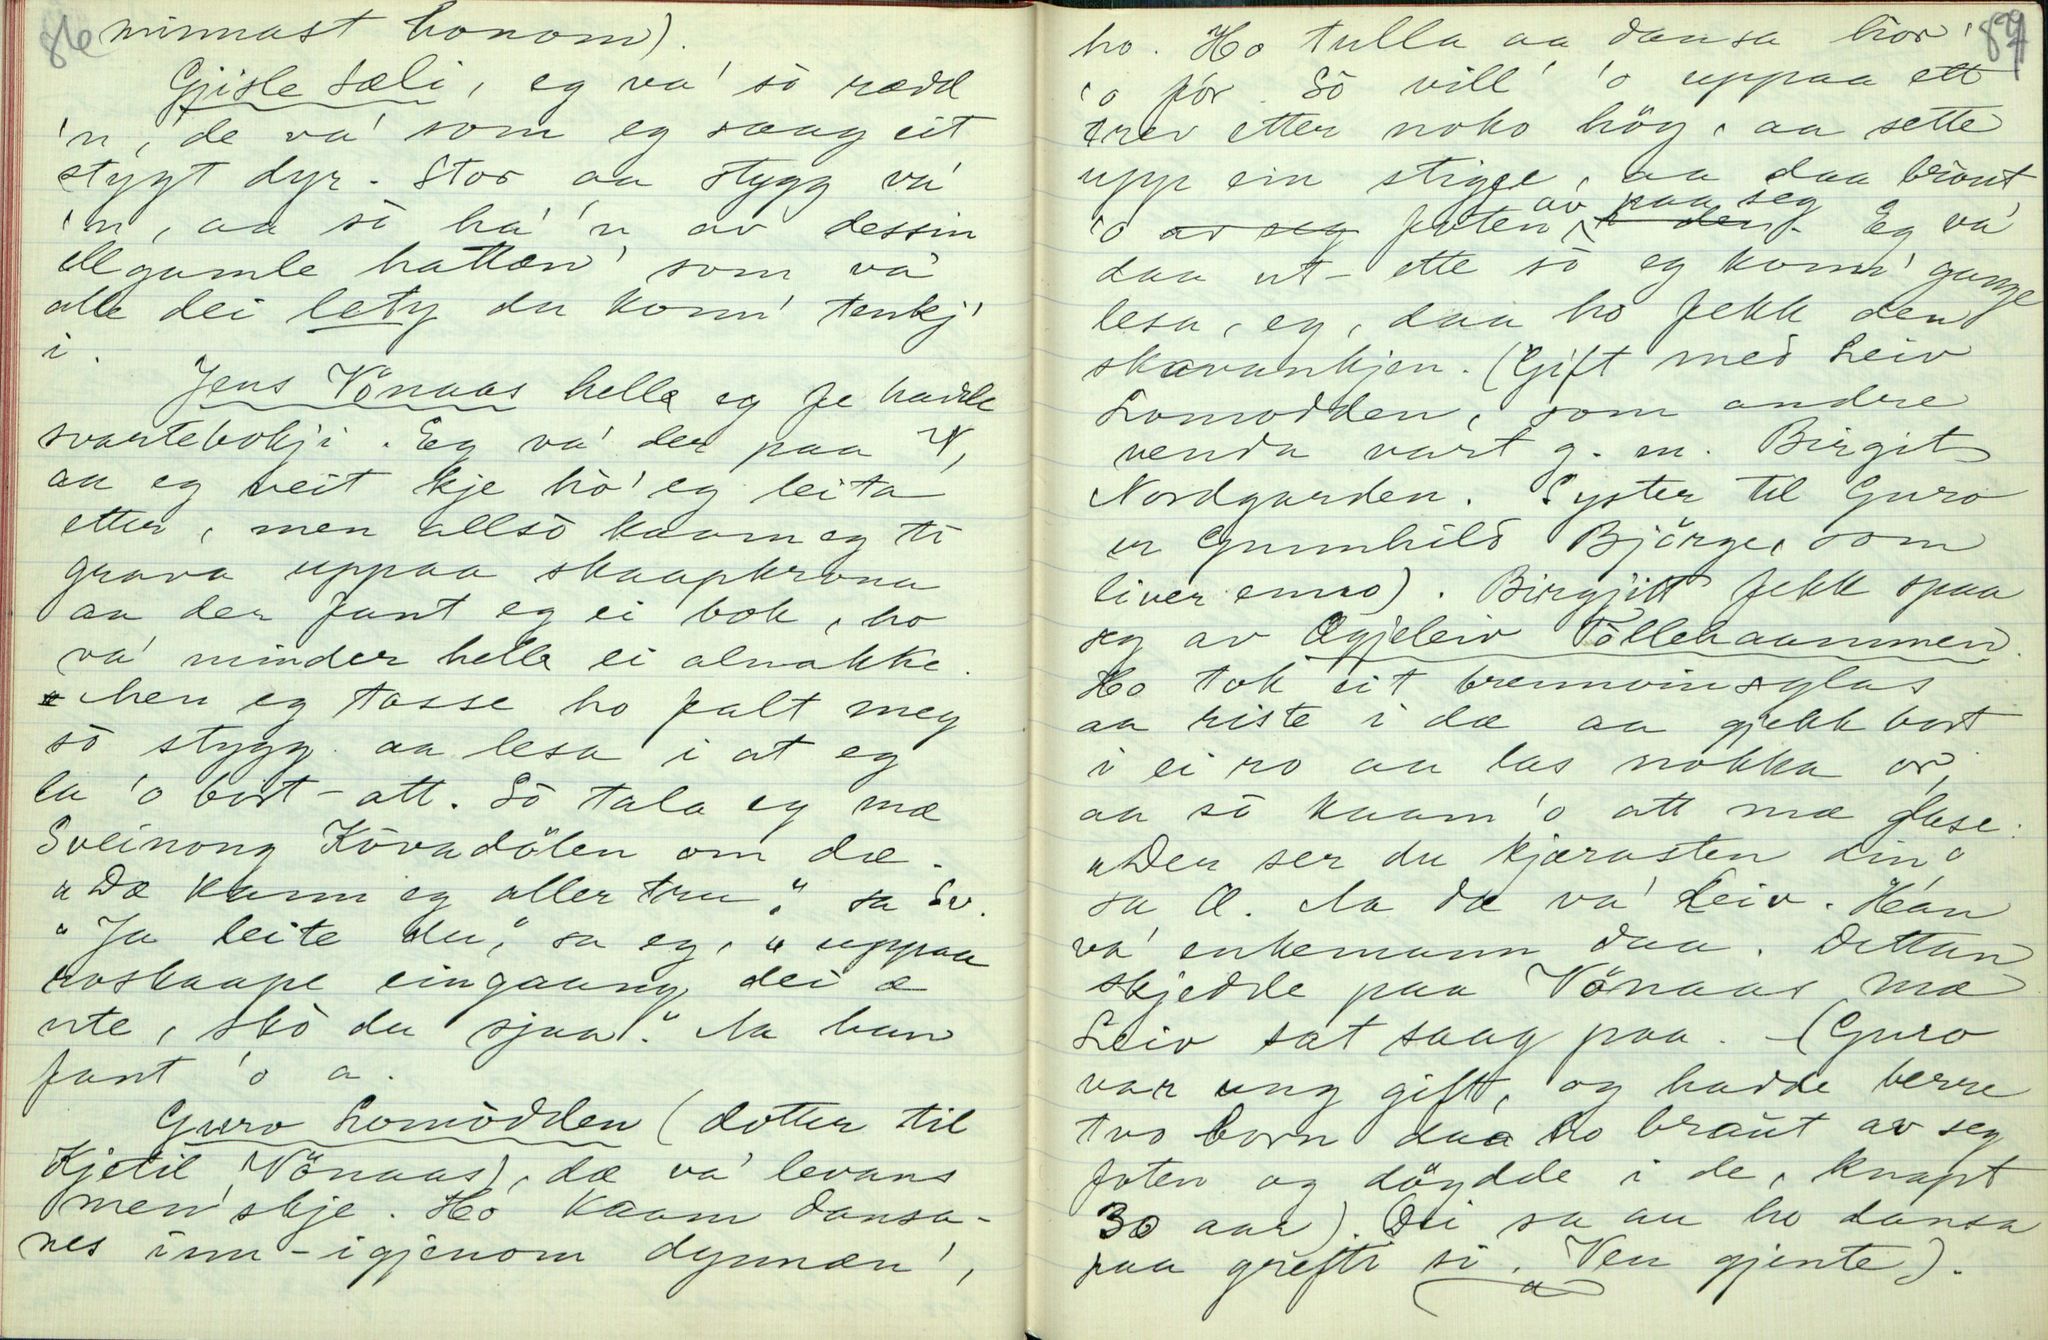 86
minnast honom).
Gjisle Sæli, eg va' sò rædd
'n, de va' som eg saag eit
stygt dyr. Stor aa stygg va'
'n, aa sò ha' 'n av dessin
ellgamle hattæn' som va'
alle dei lety du konn' tenkj'
i.
Jens Vönaas hella eg fe hadde
svartebokji. Eg va' der paa V,
aa eg veit kje hò' eg leita
etter, men allsò kaam eg ti
grava uppaa skaapkruna
aa der fant eg ei bok, ho
va' minder hella ei alnakke.
Men eg tosse ho falt meg
sò stygg aa lesa i at eg
la 'o bort-att. Sò tala eg mæ
Sveinong Kòvadölen om dæ.
"Dæ kann eg aller tru," sa Sv.
"Ja leite du," sa eg, "uppaa
roskaape eingaang dei æ
ute, skò du sjaa." Aa han
fant 'o a.
Guro Lomòdden (dotter til
Kjetil Vönaas), dæ va' levans
men'skje. Ho kaam dansa-
nes inn-igjenom dynnæn',
87
ho. Ho tulla aa dansa hòr
'o fór. Sò vill' 'o uppaa ett
trev etter noko höy, aa sette
upp ein stigge, aa daa bròut
av paa seg
'o av seg foten, den. Eg va'
daa ut-ette sò eg konn' gange
lesa, eg, daa ho fekk den
skavankjen. (Gift med Leiv
Lomodden, som andre
venda vart g. m. Birgit
Nordgarden. Syster til Guro
er Gunnhild Björge, som
liver enno). Birgjitt fekk spaa
seg av Ægjeleiv Tollehaammen.
Ho tok eit brennvinsglas
aa riste i dæ aa gjekk bort
i ei ro aa las nokka òr,
aa sò kaam 'o att mæ glase:
"Der ser du kjærasten din"
sa Æ. Aa dæ va' Leiv. Han
va' enkemann daa. Dettan
skjedde paa Vönaas mæ
Leiv sat saag paa. - (Guro
var ung gift, og hadde berre
tvo born daa ho braut av seg
foten og döydde i de, knapt
30 aar). Dei sa au ho dansa
paa grefti si. Ven gjente).